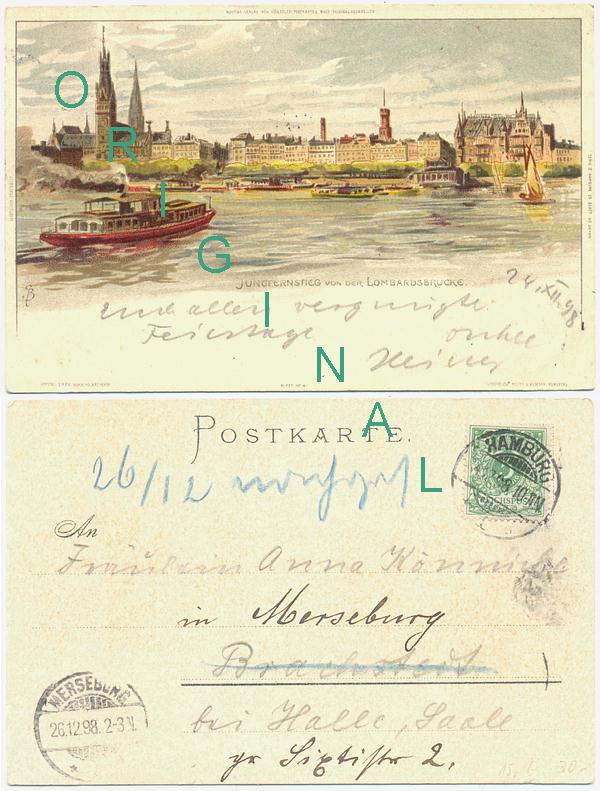 ORIGINAL
JUNGFERNSTIEG VON DER LOMBARDSBRÜCKE.
24. XII. 98
und allen vergnügte
Feiertage onkel
Heiner
POSTKARTE.
26/12
HAMBURG
An
Fräulein Anna
in Merseburg
Brachstedt
bei Halle, Saale
gr Sixtistr 2.
MERSEBURG
26.12.98. 2-3 N.